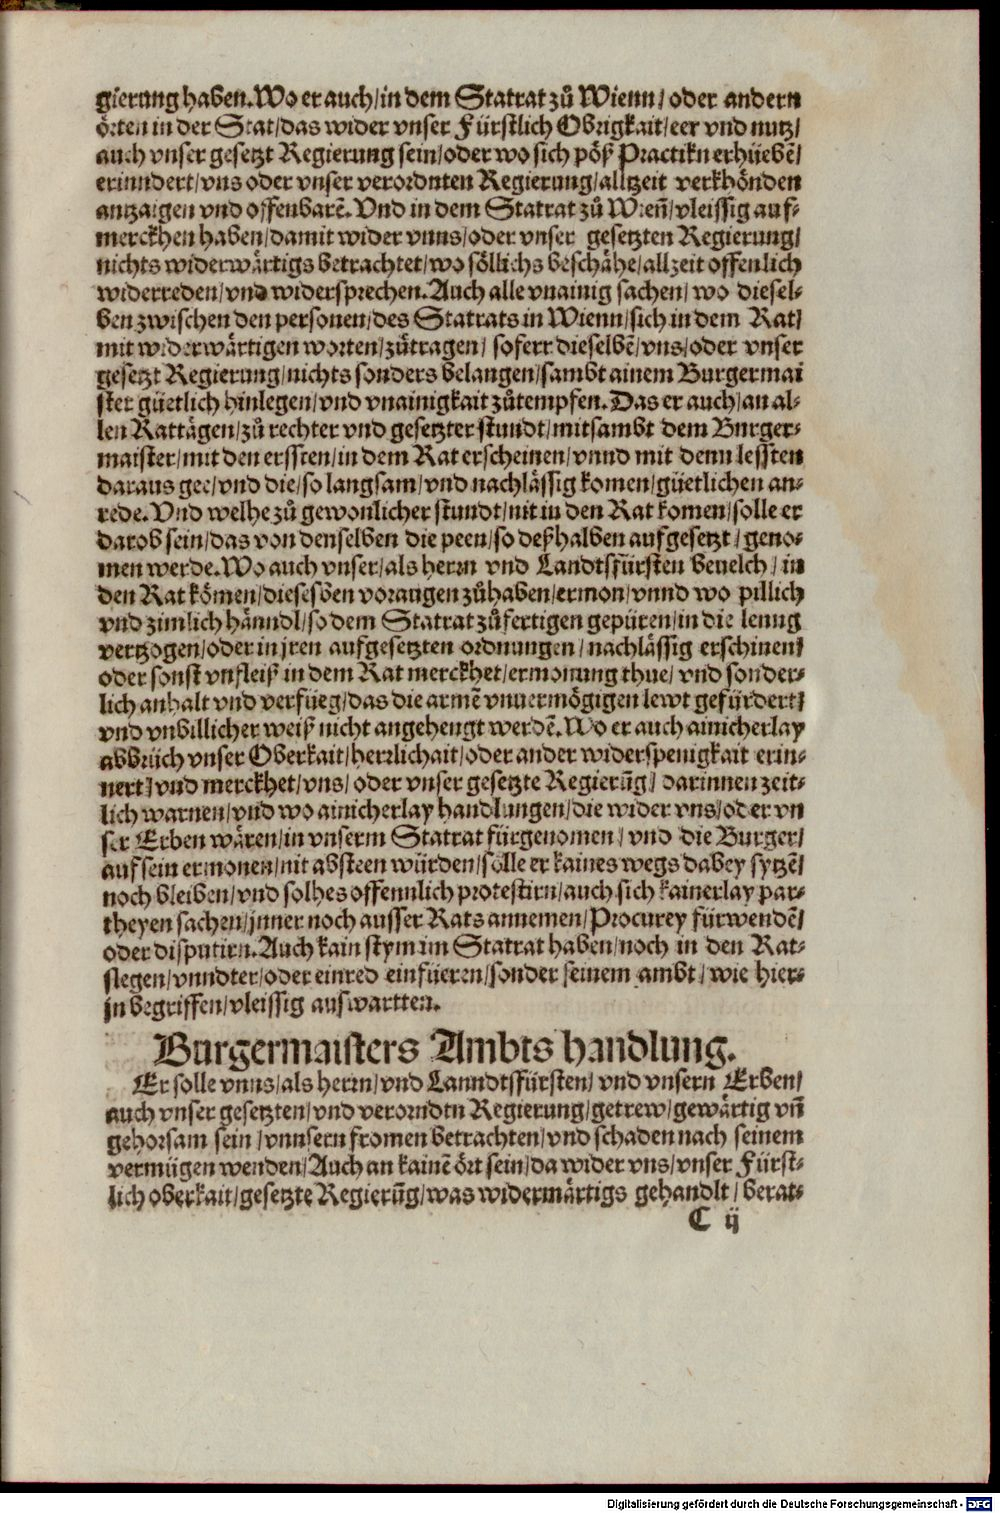 gierung haben. Wo er auch / in dem Statrat zů Wienn / oder andern
örten in der Stat / das wider vnser Fürstlich Obrigkait / eer vnd nutz /
auch vnser gesetzt Regierung sein / oder wo sich pöß Practikn erhüebē /
erinndert / vns oder vnser verordnten Regierung / alltzeit verkhönden
antzaigen vnd offenbarē. Vnd in dem Statrat zů Wieñ / vleissig auf-
merckhen haben / damit wider vnns / oder vnser gesetzten Regierung /
nichts widerwärtigs betrachtet / wo söllichs beschähe / allzeit offenlich
widerreden / vnd widersprechen. Auch alle vnainig sachen / wo diesel-
ben zwischen den personen / des Statrats in Wienn / sich in dem Rat /
mit widerwärtigen worten / zůtragen / soferr dieselbē / vns / oder vnser
gesetzt Regierung / nichts sonders belangen / sambt ainem Burgermai
ster güetlich hinlegen / vnd vnainigkait zůtempfen. Das er auch / an al-
len Rattägen / zů rechter vnd gesetzter stundt / mitsambt dem Burger-
maister / mit den erssten / in dem Rat erscheinen / vnnd mit denn lessten
daraus gee / vnd die / so langsam / vnd nachlässig komen / güetlichen an-
rede. Vnd welhe zů gewonlicher stundt / nit in den Rat komen / solle er
darob sein / das von denselben die peen / so deßhalben aufgesetzt / geno-
men werde. Wo auch vnser / als herrn vnd Landtsfürsten beuelch / in
den Rat kömen / dieselben vorangen zůhaben / ermon / vnnd wo pillich
vnd zimlich hänndl / so dem Statrat zůfertigen gepüren / in die lenng
vertzogen / oder in jren aufgesetzten ordnungen / nachlässig erschinen /
oder sonst vnfleiß in dem Rat merckhet / ermonung thue / vnd sonder-
lich anhalt vnd verfüeg / das die armē vnuermögigen lewt gefürdert /
vnd vnbillicher weiß nicht angehengt werdē. Wo er auch ainicherlay
abbrüch vnser Oberkait / herrlichait / oder ander widerspenigkait erin-
nert / vnd merckhet / vns / oder vnser gesetzte Regierūg / darinnen zeit-
lich warnen / vnd wo ainicherlay handlungen / die wider vns / oder vn
ser Erben wären / in vnserm Statrat fürgenomen / vnd die Burger /
auf sein ermonen / nit absteen würden / solle er kaines wegs dabey sytzē /
noch bleiben / vnd solhes offennlich protestirn / auch sich kainerlay par-
theyen sachen / jnner noch ausser Rats annemen / Procurey fürwendē /
oder disputirn. Auch kain stym im Statrat haben / noch in den Rat-
slegen / vnndter / oder einred einfüeren / sonder seinem ambt / wie hier-
jn begriffen / vleissig auswartten.
Burgermaisters Ambts handlung.
Er solle vnns / als herrn / vnd Lanndtsfürsten / vnd vnsern Erben /
auch vnser gesetzten / vnd verorndtn Regierung / getrew / gewärtig vñ
gehorsam sein / vnnsern fromen betrachten / vnd schaden nach seinem
vermügen wenden / Auch an kainē ört sein / da wider vns / vnser Fürst-
lich oberkait / gesetzte Regierūg / was widerwärtigs gehandlt / berat-
C ij
Digitalisierung gefördert durch die Deutsche Forschungsgemeinschaft - DFG